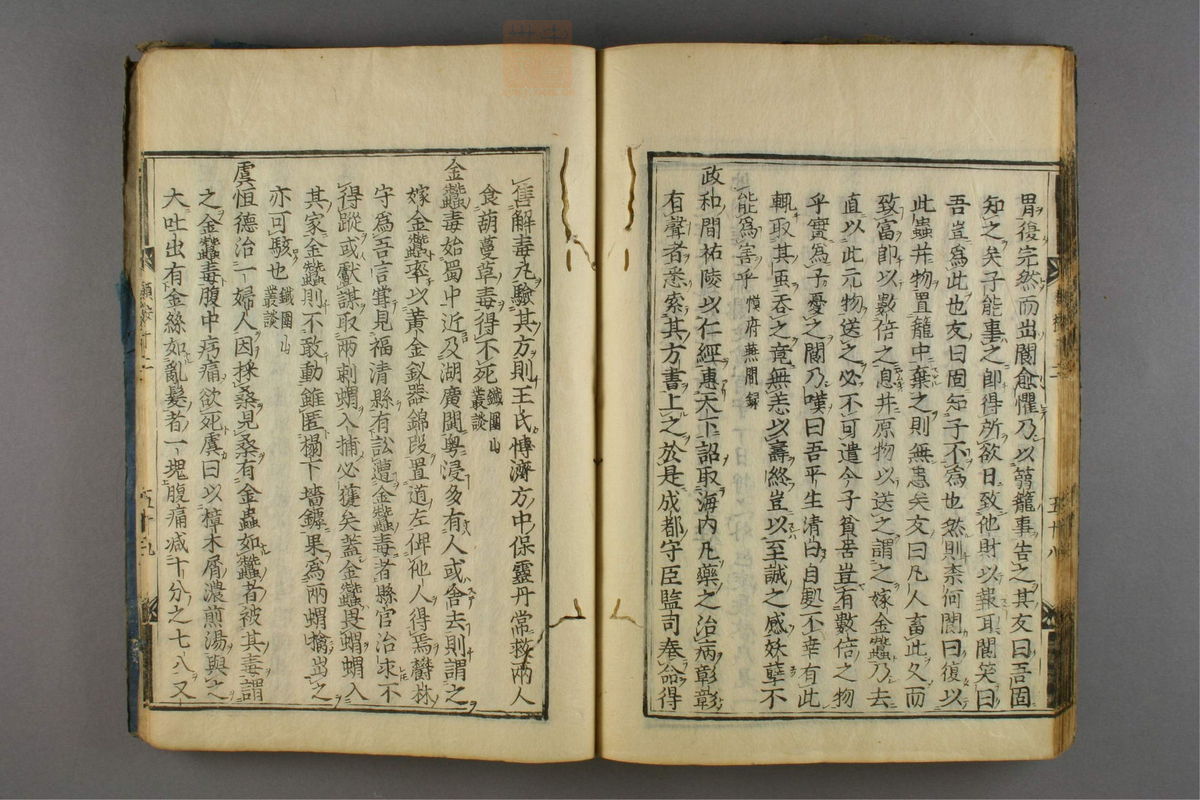 胃復完然而出閻愈懼乃以篛籠事告之其友曰吾固
知之矣子能事之即得所欲日致他財以報耳閻笑曰
吾豈爲此也友曰固知子不爲也然則柰何閻曰復以
此蟲并物置籠中棄之則無患矣友曰凡人畜此久而
致富即以數倍之息井原物以送之謂之嫁金蠶乃去
直以此元物送之必不可遣今子貧居豈有數倍之物
乎實爲子憂之閻乃嘆曰吾平生清白自處不幸有此
輒取其蟲吞之竟無恙以壽終豈以至誠之感妖孽不
能爲害乎 幕府燕閒錄
政和間祐陵以仁經惠天下詔取海内凡藥之治病彰彰
有聲者悉索其方書上之於是成都守臣監司奉命得
售解毒丸驗其方則王氏博濟方中保靈丹常救兩人
食葫蔓草毒得不死 鐵圍山
叢談
金蠶毒始蜀中近及湖廣閩粤浸多有人或舍去則謂之
嫁金蠶率以黃金釵器錦段置道左俾他人得焉鬱林
守爲吾言嘗見福清縣有訟遭金蠶毒者縣官治求不
得蹤或獻謀取兩刺蝟入捕必獲矣蓋金蠶畏蝟蝟入
其家金蠶則不敢動雖匿榻下墻罅果爲兩蝟擒出之
亦可駭也 鐵圍山
叢談
虞恒德治一婦人因採桑見桑有金蟲如蠶者被其毒謂
之金蠶毒腹中㽲痛欲死虞曰以樟木屑濃煎湯與之
大吐出有金絲如亂髮者一塊腹痛减十分之七八又
五十八